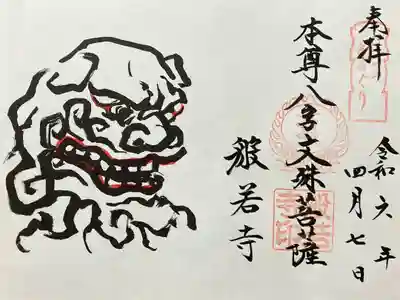 奉拝
令和六年
四月七日
本尊八字文殊菩薩
般若寺